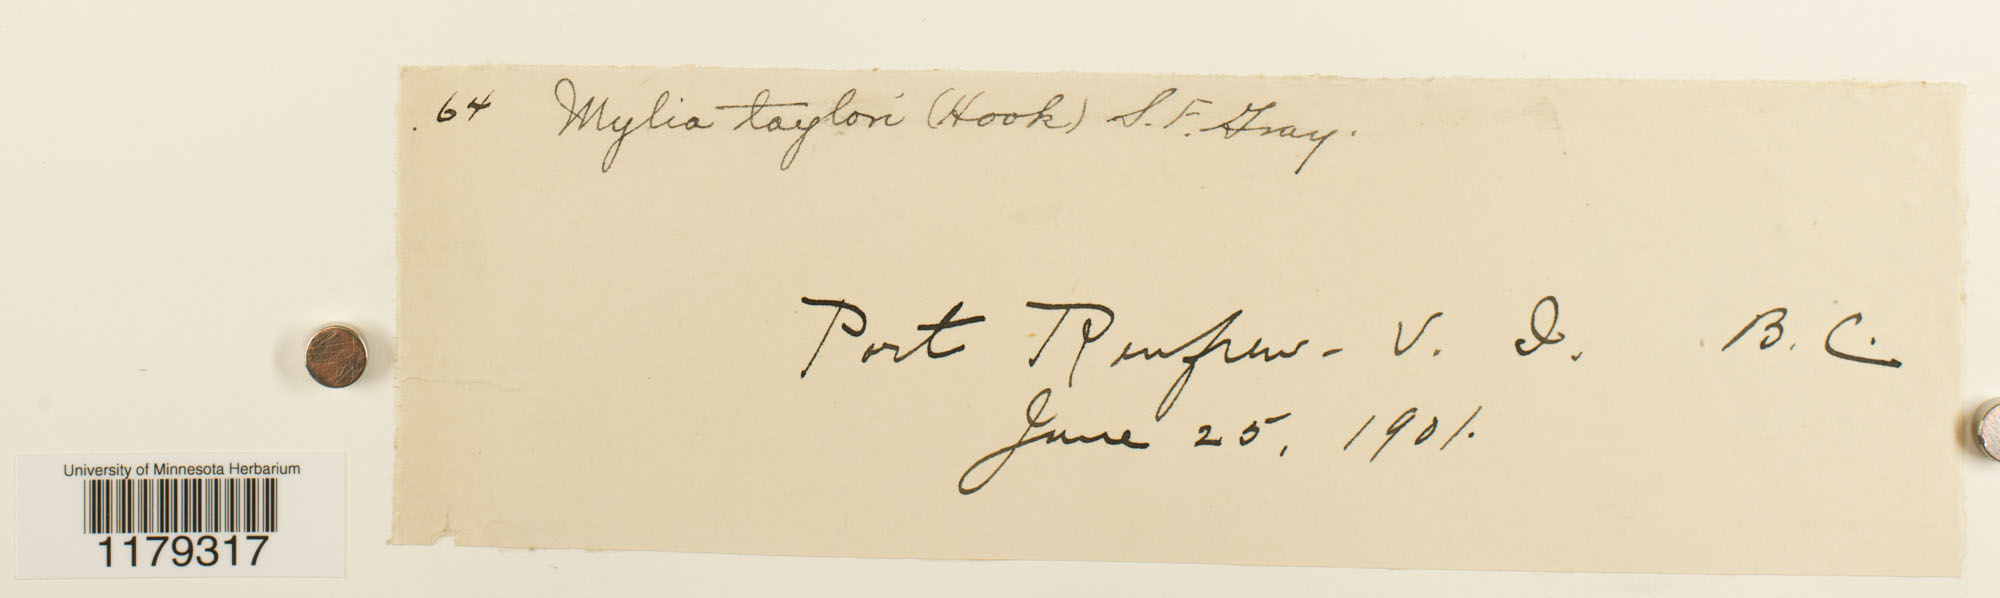 64 Mylia taylori (Hook) S. F. Gray.
Port Renfrew - V. I. B. C.
June 25, 1901.
University of Minnesota Herbarium
1179317